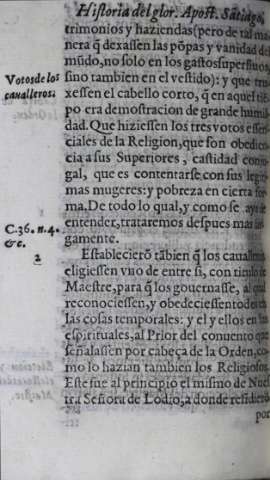 Historia del glor. Apost. Sātiago,
trimonios y haziendas (pero de tal ma
nera q̃ dexassen las põpas y vanidad del
mũdo, no solo en los gastos superfluos,
sino tambien en el vestido): y que tru
xessen el cabello corto, q̃ en aquel tiẽ
po era demostracion de grande humil
dad. Que hiziessen los tres votos essen
ciales de la Religion, que son obedien
cia a sus Superiores, castidad conju
gal, que es contentarse con sus legiti
mas mugeres: y pobreza en cierta for
ma. De todo lo qual, y como se aya de
entender, trataremos despues mas lar
gamente.
Establecierō tābien q̃ los caualleros
eligiessen vno de entre si, con titulo de
Maestre, para q̃ los gouernasse, al qual
reconociessen, y obedeciessen todos en
las cosas temporales: y el y ellos en las
espirituales, al Prior del conuento que
señalassen por cabeça de la Orden, co
mo lo hazian tambien los Religiosos.
Este fue al principio el mismo de Nues
tra Señora de Lodio, a donde residierō
por
Votos de los
caualleros.
C.36. n.4.
&c.
2